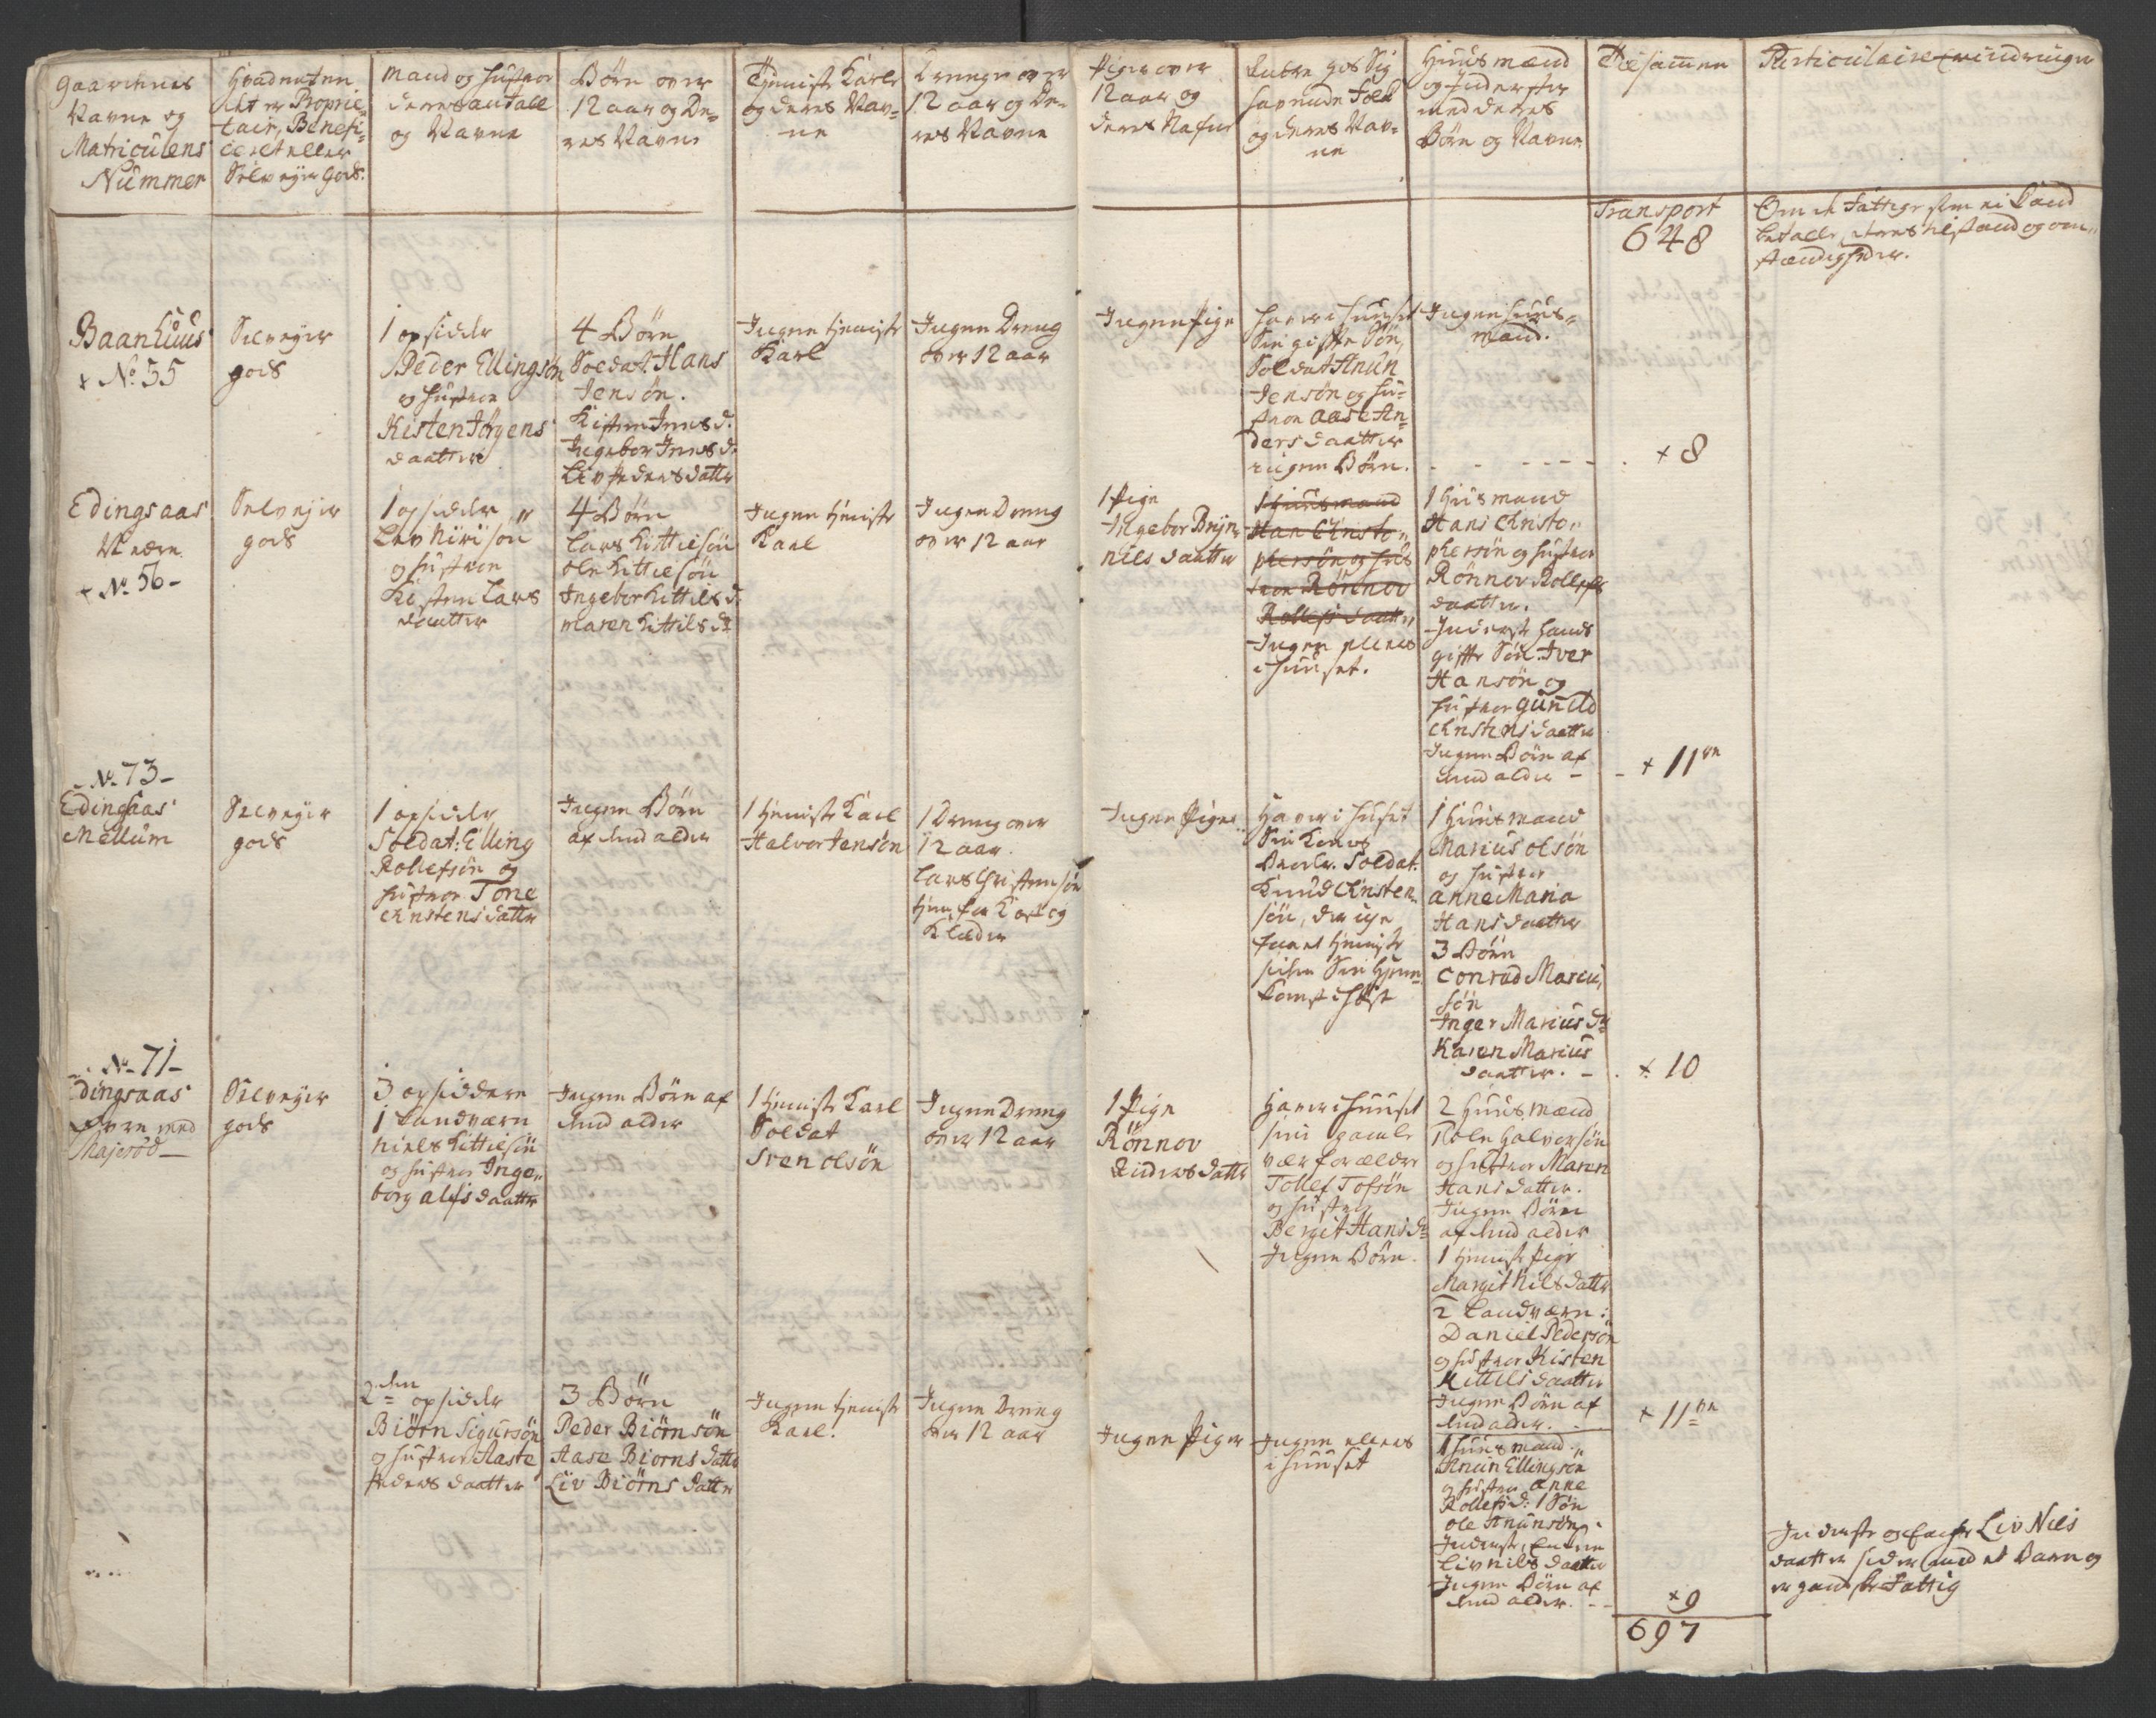 Gaardenes
Navne og
Matriculens
Nummer
Hvadenten
det er Proprie-
tair, Benefi-
ceret eller
Selv eyer Gods.
Mand og Hustroe
deres antall
og Navne
Börn over
12 aar og De-
res Navne
Tjeniste Karle
og deres Nav-
ne
Drenge over
12 aar og De-
res Navne
Piger over
12 aar og
deres Nafne
Andre hos Sig
havende Folk
og deres Nav-
ne
Huusmænd
og Inderster
med deres
Börn og Navne
Tilsammen
Particulaire Erindringer
Transport
648
Om de Fattige som ei kand
betalle, deres tilstand og om-
stændigheder.
Baanhuus
+ No 55
Selveyer
gods
1 opsidder
Peder Ellingsön
og Hustroe
Kisten Jörgens
daatter
4 Börn
Soldat: Hans
Jensön.
Kisten Jensd.
Ingebor Jensd.
Liv Peders datter
Ingen tjeniste
Karl
Ingen Dreng
over 12 aar
Ingen Pige
Haver i Huuset
Sin gifte Sön,
Soldat Anun
Jensön og Hu-
stroe Aase An-
ders daatter
ingen Börn.
Ingen Huus-
mand.
+ 8
Edingsaas
Nedre
+ No 56 -
Selveyer
gods
1 opsidder
og Hustroe
Kisten Lars
daatter
4 Börn
Lars Kittilsön
Ole Kittilsön
Ingebor Kittilsd.
Maren Kittilsdr
Ingen tjeniste
Karl
Ingen Dreng
over 12 aar
1 Pige
Ingebor Brÿn-
nils daatter
1 Huusmand
Han Christo-
phersön og Hus
troe Rönnov
Rollefs daatter
Ingen ellers
i Huuset.
1 Huusmand
Hans Christo-
phersön og Hustroe
Rönnov Rollefs
daatter.
Inderst hands
gifte Sön: Iver
Hansön og
Hustroe Gunild
Christens daatter
Ingen Börn af
Amd alder -
+ 11
- No 73 -
Edingsaas
Mellum
Selveyer
gods
1 opsidder
Soldat: Elling
Rollefsön og
Hustroe Tone
Christens datter
Ingen Börn
af Amd alder
1 tjeniste Karl
Halvor Jensön
1 Dreng over
12 aar.
Lars Christensön
tjener for Kost og
Klæder
Ingen Piger
Haver i Huset
Sin Kones
Broder. Soldat.
Knud Christen-
sön, der iche
faaet tjeniste
siden Sin Hjem-
komst i höst
1 Huusmand
Marius Olsön
og Hustroe
Anne Maria
Hans daatter
3 Börn
Conrad Marius
sön
Inger Marius dr
Karen Marius
daatter. -
+ 10
- No 71 -
Edingsaas
Övre med
Majeröd -
Selveyer
gods
3 opsiddere
1 Landværn
Niels Kittilsön
og Hustroe Inge-
borg Alfs daatter
Ingen Börn af
Amd alder
1 tjeniste Karl
Soldat
Sven Olsön
Ingen Dreng
over 12 aar
1 Pige
Rönnov
Anders datter
Haver i Huuset
sine gamle
vær forældre
Tollef Tofsön
og Hustroe
Bergit Hansdr
Ingen Börn.
2 Huusmænd
Ole Halvorsön
og Hustroe Maren
Hans datter.
Ingen Börn
af Amd alder
1 tjeniste Pige
Margit Nils datter
2 Landværn:
Daniel Pedersön
og Hustroe Kisten
Kittils daatter
Ingen Börn af
Amd alder.
+ 11
2den opsidder
Biörn Sigursön
og Hustroe Aaste
Peders daatter
3 Börn
Peder Biörnsön
Aase Biorns datter
Liv Biörns datter
Ingen tjeniste
Karl.
Ingen Dreng
over 12 aar
Ingen Piger
Ingen ellers
i Huuset
1 Huusmand.
Anun Ellingsön
og Hustroe Anne
Rollefsd: 1 Sön
Ole Anunsön.
Inderste, Enken
Liv Nils daatter
Ingen Börn af
Amd alder. - -
+ 9
697
Inderste og Liv Nils
daatter sidder med et Barn og
er gandske Fattig